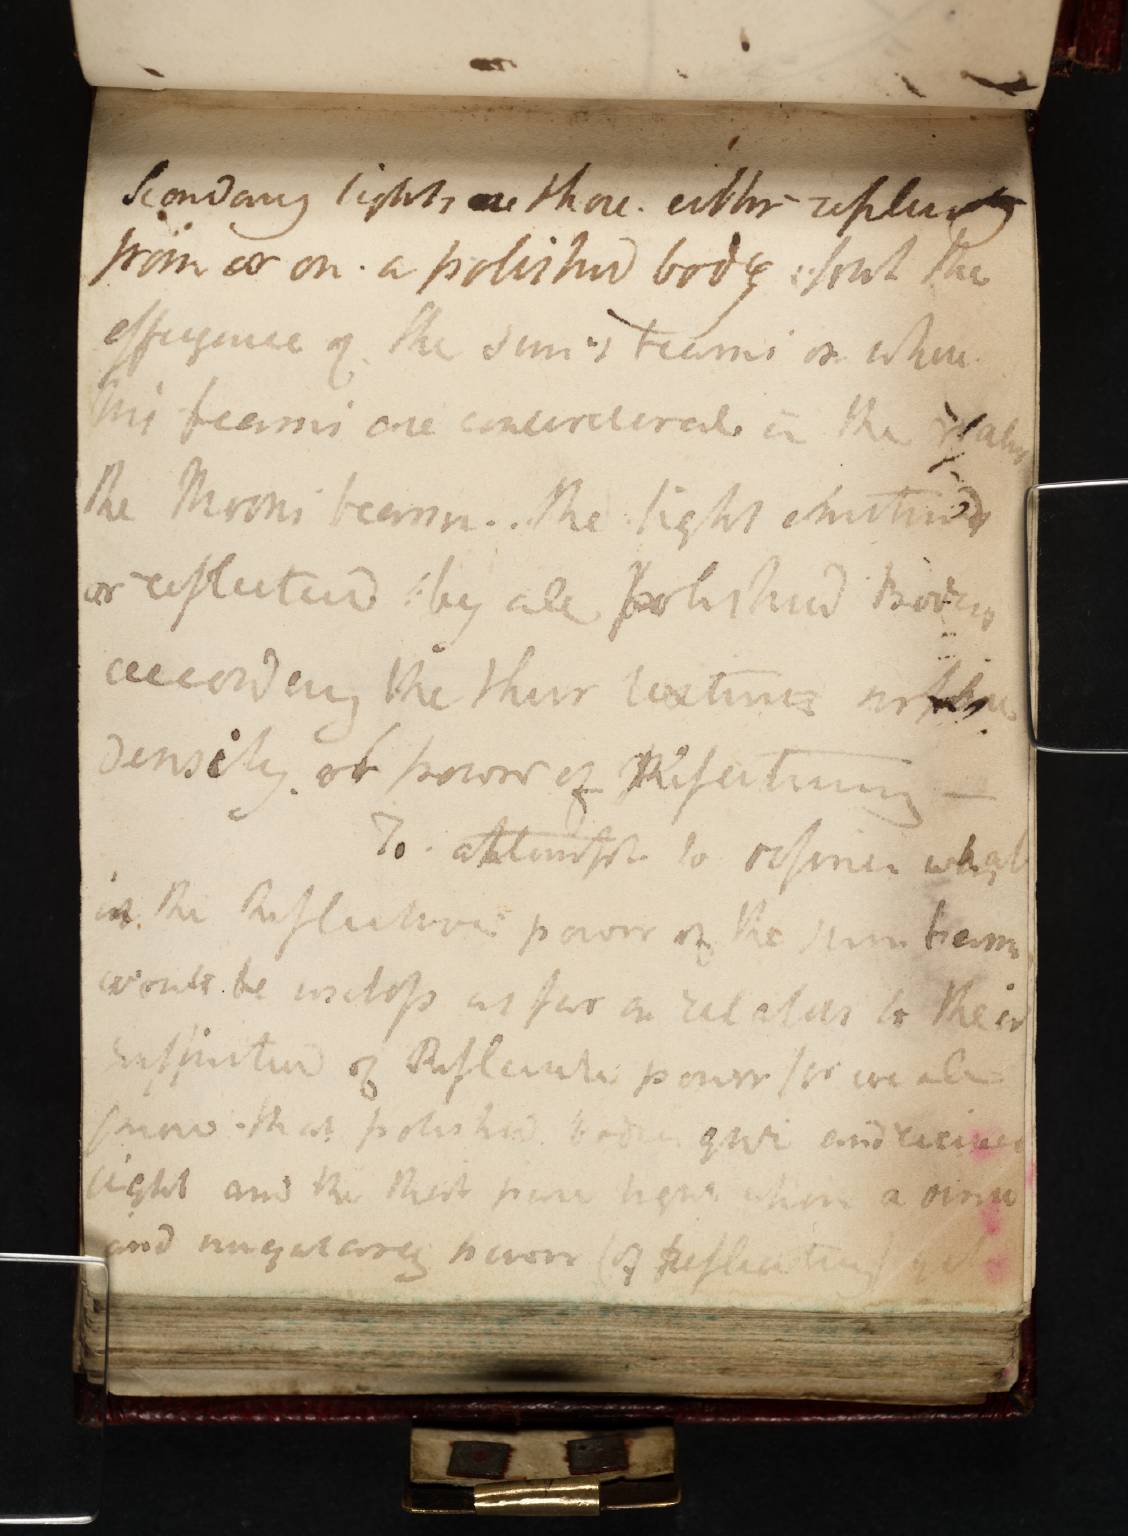 Secondary lights are those either reflecting
from or on a polished body : first the
effugence of the sun's beams or when
his beams are in the
the Moons beams . . the light emitted
or reflected by all polished Bodies
according the their textures
density or power of Reflecting —
To attempt to define what
is the Reflective power of the sun beams
would be useless as far as relates to their
of Reflective power for we all
know that polished bodies give and receive
light and the pure light when a
and power (of Reflecting)